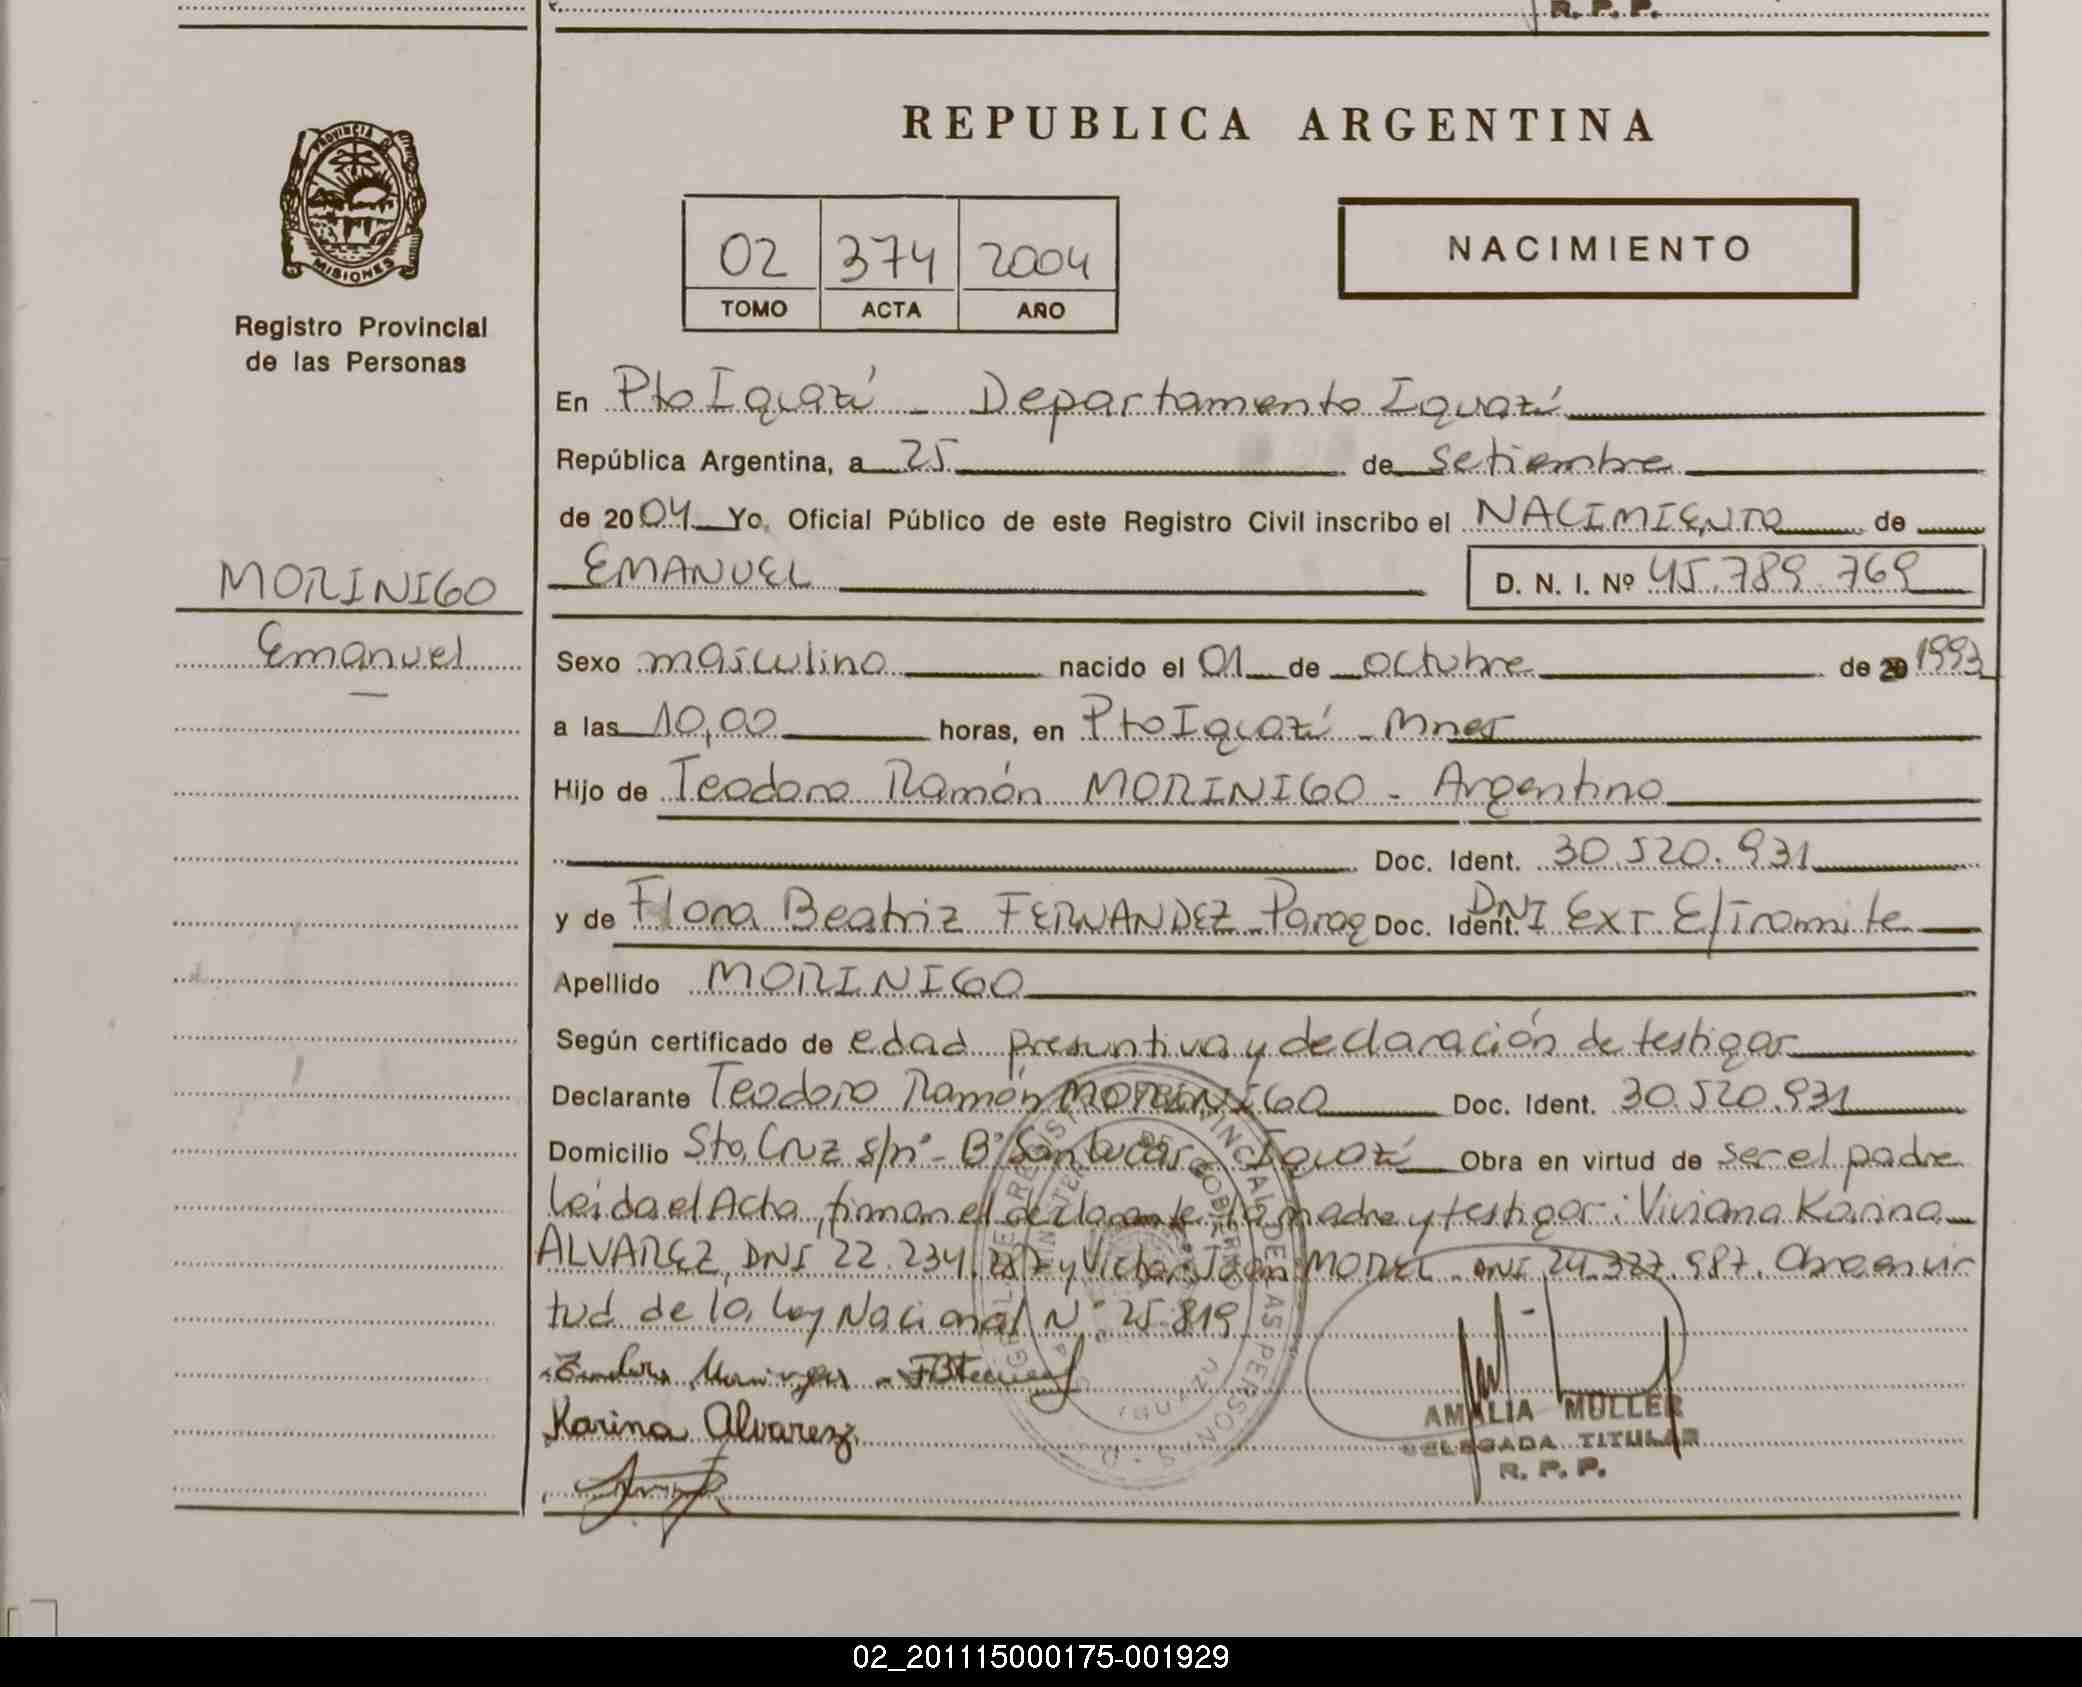 R. P. P.
PROVINCIA
MISIONES
Registro Provincial
de las Personas
MORINIGO
Emanuel
REPUBLICA ARGENTINA
02 374 2004
TOMO ACTA AÑO
NACIMIENTO
En Pto Iguazú - Departamento Iguazú
República Argentina, a 25 de setiembre
de 2004 Yo, Oficial Público de este Registro Civil inscribo el NACIMIENTO de
EMANUEL D. N. I. Nº 45.789.769
Sexo masculino nacido el 01 de octubre de 20 1993
a las 10,00 horas, en Pto Iguazú - Mnes
Hijo de Teodoro Ramón MORINIGO - Argentino
Doc. Ident. 30.520.931
y de Flora Beatriz FERNANDEZ - Parag Doc. Ident. DNI Ext. E/Tramite
Apellido MORINIGO
Según certificado de edad presuntiva y declaración de testigos
Declarante Teodoro Ramón MORINIGO Doc. Ident. 30.520.931
Domicilio Sto. Cruz s/nº - Bº San Lucas - Iguazú Obra en virtud de ser el padre
Leida el Acta, firman el declarante, la madre y testigos: Viviana Karina
ALVAREZ, DNI 22.234.287 y Victor Juan MOREL - DNI 24.327.987. Obra en vir
tud de la Ley Nacional Nº 25.819
Karina Alvarez
AMALIA MULLER
DELEGADA TITULAR
R. P. P.
02_201115000175-001929